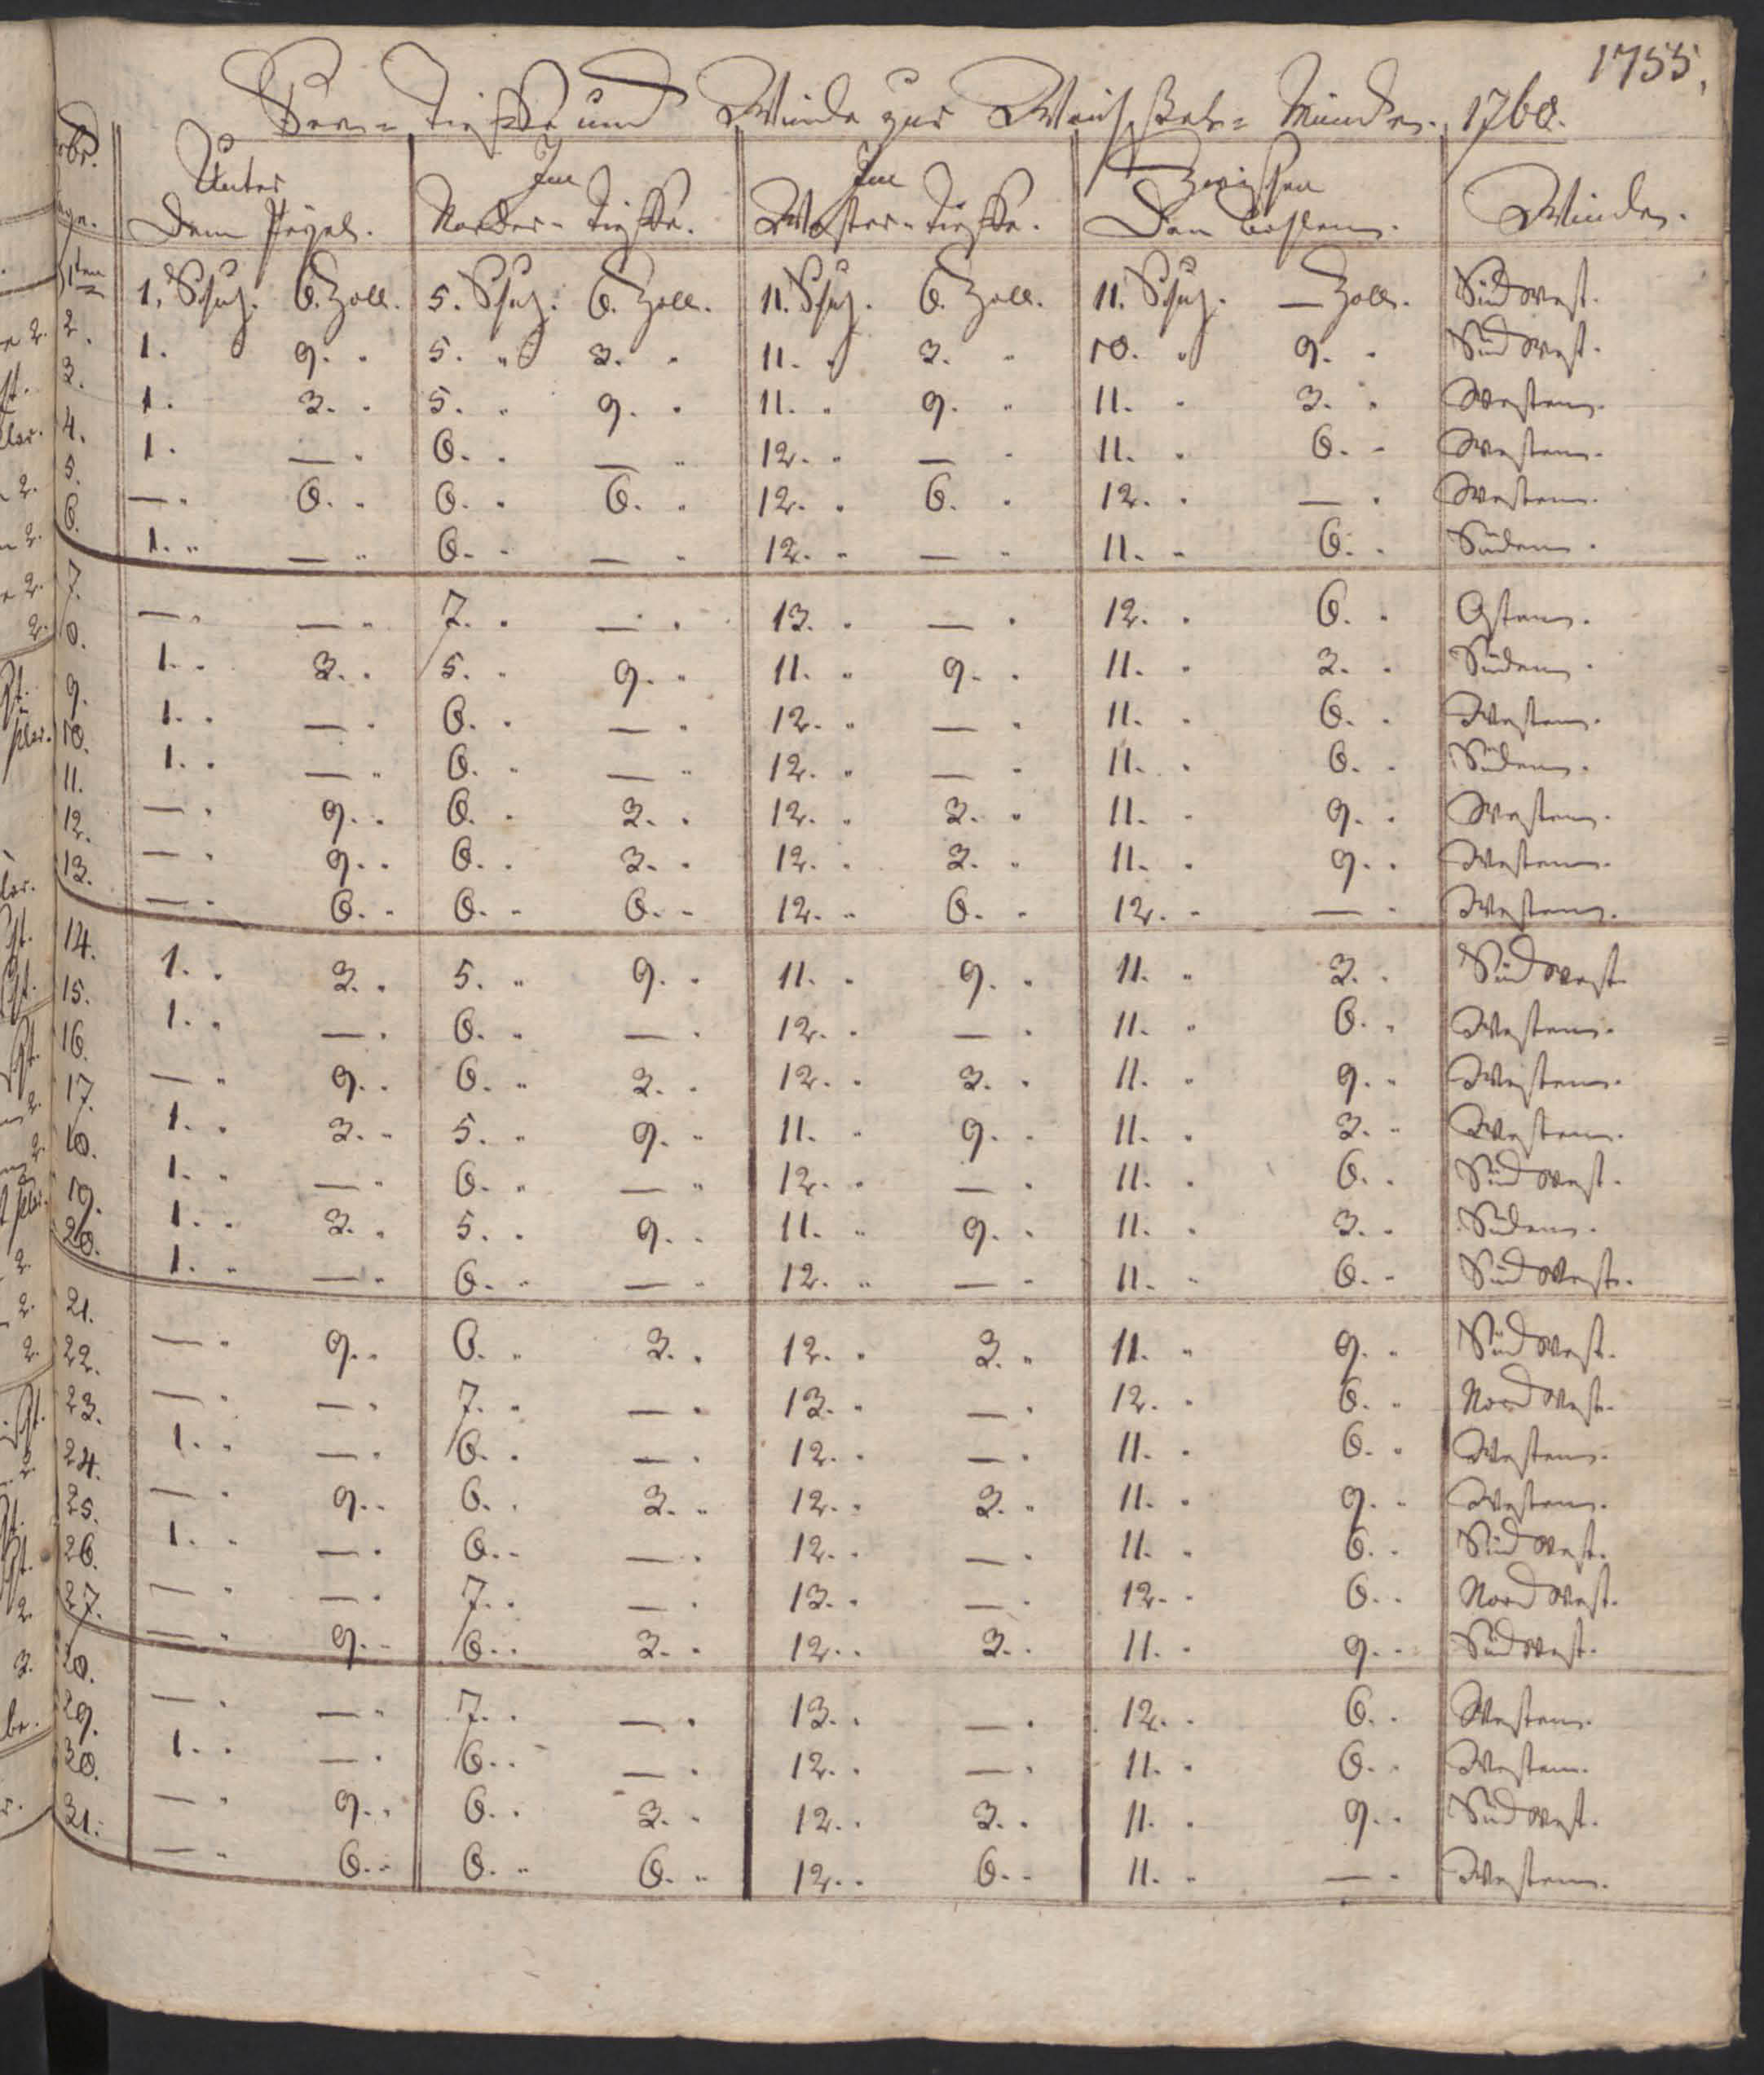 1755.
See=Tieffe und Winde zur Weichsel=Münde. 1760.
Unter dem Pegel. | Im Norder=Tieffe. | Im Wester=Tieffe. | Zwischen den Bohlen. | Winde.
1ten 1. Schuh. 6. Zoll. 5. Schuh. 6. Zoll. 11. Schuh. 6. Zoll. 11. Schuh. — Zoll. Südwest.
2. 1. 9. " 5. " 3. " 11. " 3. " 10. " 9. " Südwest.
3. 1. 3. " 5. " 9. " 11. " 9. " 11. " 3. " Westen.
4. 1. — " 6. " — " 12. " — " 11. " 6. " Westen.
5. — " 6. " 6. " 6. " 12. " 6. " 12. " — " Westen.
6. 1. " — " 6. " — " 12. " — " 11. " 6. " Süden.
7. — " — " 7. " — " 13. " — " 12. " 6. " Osten.
8. 1. " 3. " 5. " 9. " 11. " 9. " 11. " 3. " Süden.
9. 1. " — " 6. " — " 12. " — " 11. " 6. " Westen.
10. 1. " — " 6. " — " 12. " — " 11. " 6. " Süden.
11. — " 9. " 6. " 3. " 12. " 3. " 11. " 9. " Westen.
12. — " 9. " 6. " 3. " 12. " 3. " 11. " 9. " Westen.
13. — " 6. " 6. " 6. " 12. " 6. " 12. " — " Westen.
14. 1. " 3. " 5. " 9. " 11. " 9. " 11. " 3. " Südwest.
15. 1. " — " 6. " — " 12. " — " 11. " 6. " Westen.
16. — " 9. " 6. " 3. " 12. " 3. " 11. " 9. " Westen.
17. 1. " 3. " 5. " 9. " 11. " 9. " 11. " 3. " Westen.
18. 1. " — " 6. " — " 12. " — " 11. " 6. " Südwest.
19. 1. " 3. " 5. " 9. " 11. " 9. " 11. " 3. " Süden.
20. 1. " — " 6. " — " 12. " — " 11. " 6. " Südwest.
21. — " 9. " 6. " 3. " 12. " 3. " 11. " 9. " Südwest.
22. — " — " 7. " — " 13. " — " 12. " 6. " Nordwest.
23. 1. " — " 6. " — " 12. " — " 11. " 6. " Westen.
24. — " 9. " 6. " 3. " 12. " 3. " 11. " 9. " Westen.
25. 1. " — " 6. " — " 12. " — " 11. " 6. " Südwest.
26. — " — " 7. " — " 13. " — " 12. " 6. " Nordwest.
27. — " 9. " 6. " 3. " 12. " 3. " 11. " 9. " Südwest.
28. — " — " 7. " — " 13. " — " 12. " 6. " Westen.
29. 1. " — " 6. " — " 12. " — " 11. " 6. " Westen.
30. — " 9. " 6. " 3. " 12. " 3. " 11. " 9. " Südwest.
31. — " 6. " 6. " 6. " 12. " 6. " 11. " — " Westen.